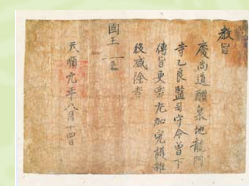 教旨
慶尚道醴泉地龍門
寺乙良監司守令曾下
傳旨更審尤加完護雜
役減除者
國王
天順元年八月十四日